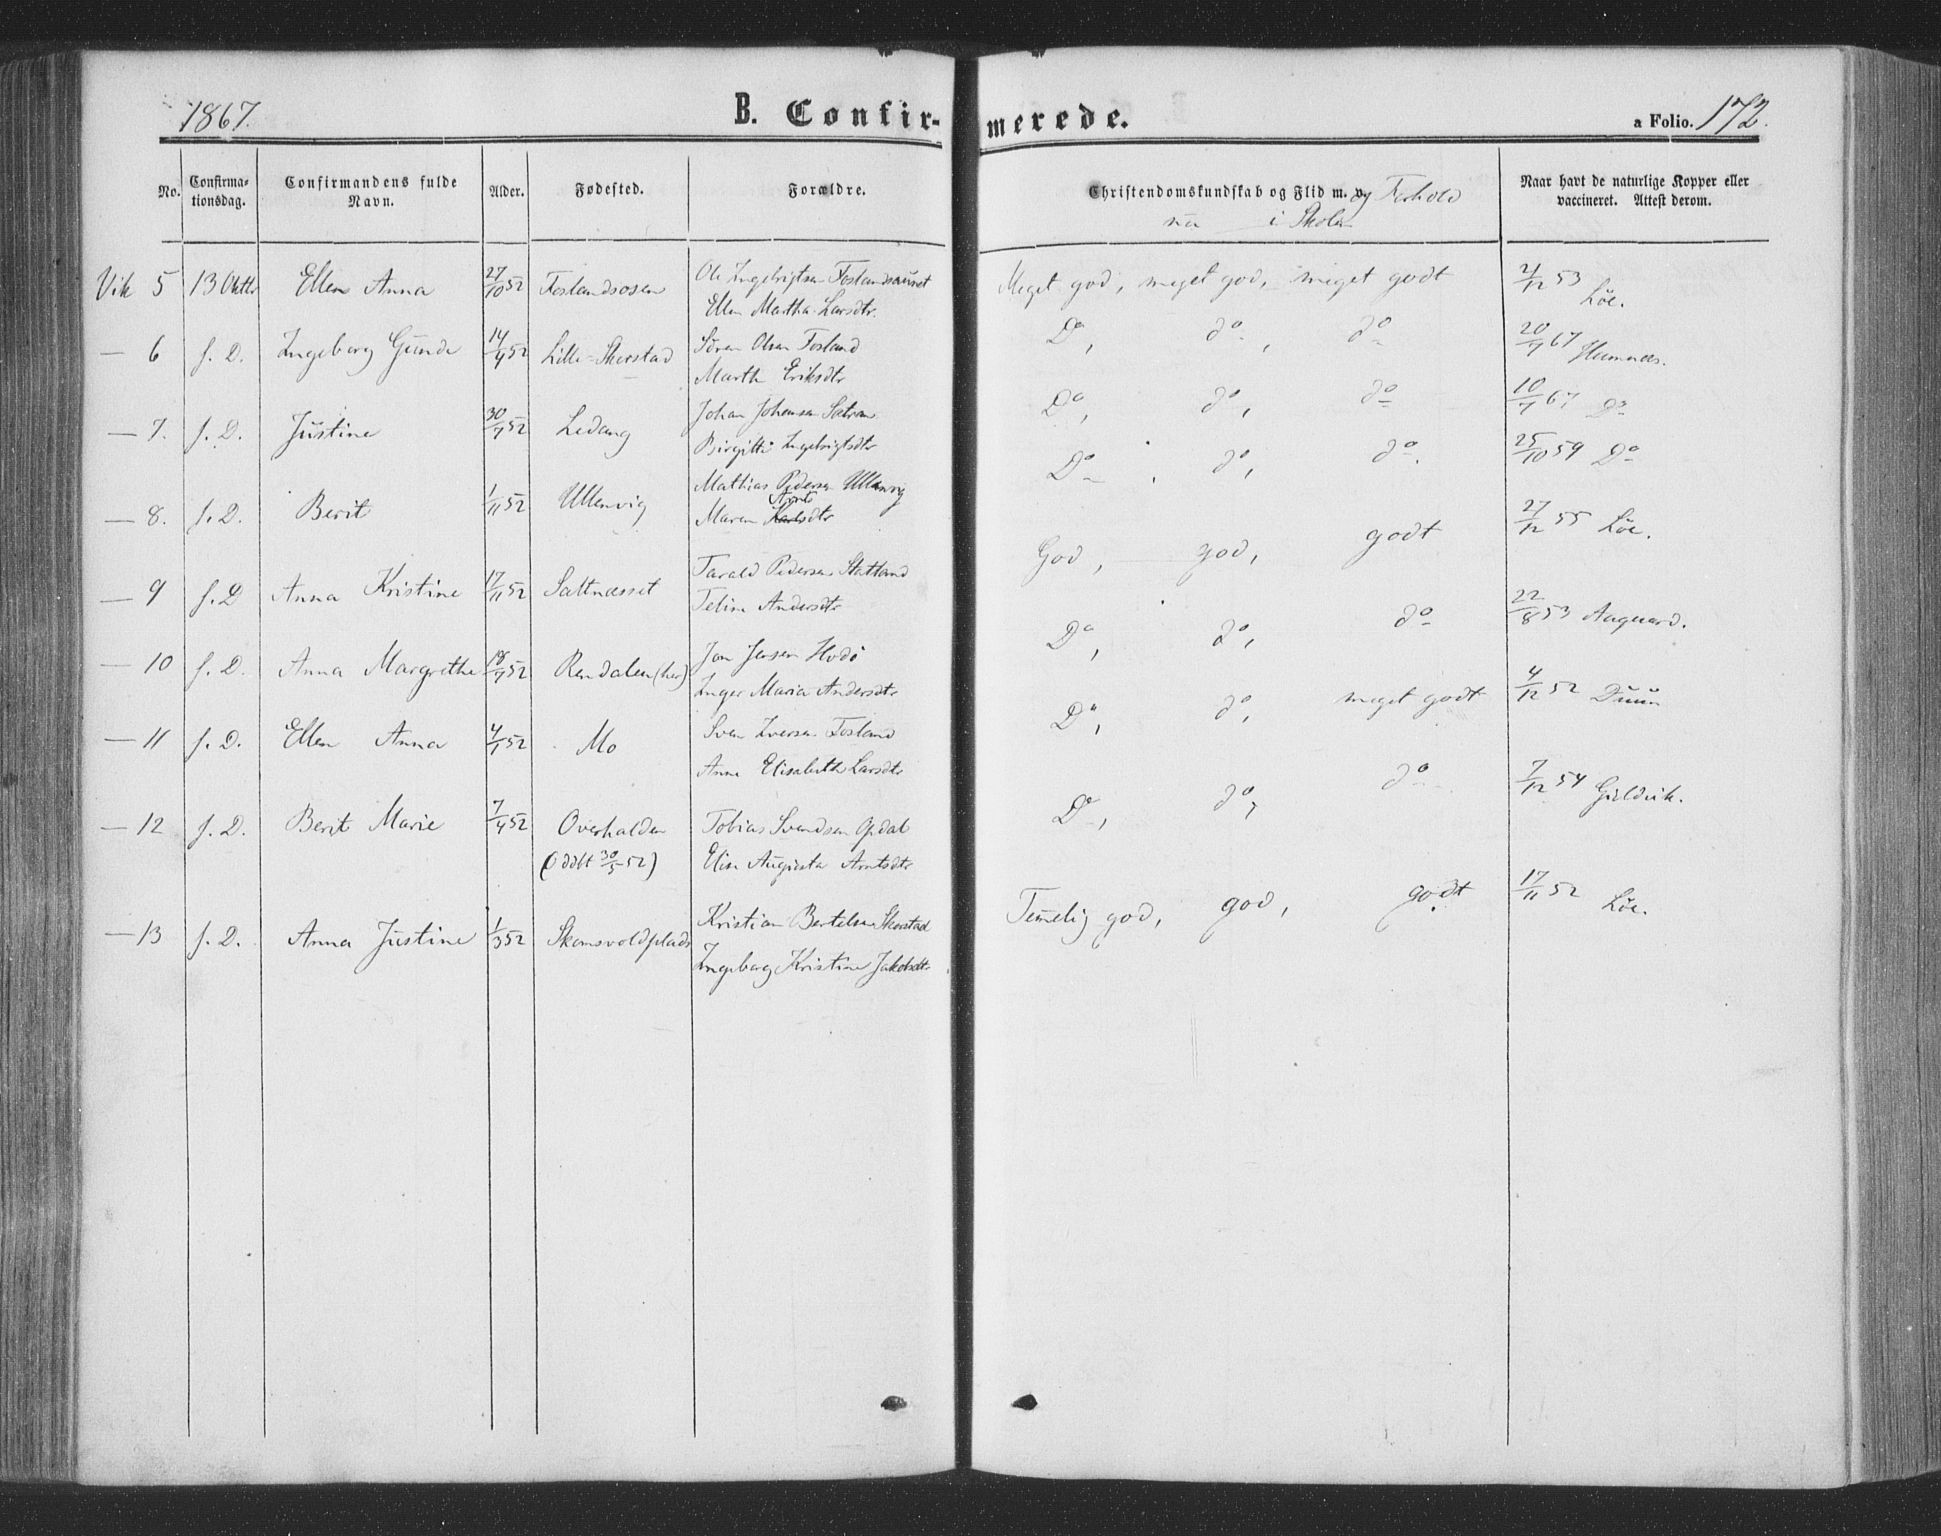 1867. B. Confir- merede. a Folio. 172.
No. Confirma-tionsdag. Confirmandens fulde Navn. Alder. Fødested. Forældre. Christendomskundskab og Flid m. v. og Forhold i Skolen Naar havt de naturlige Kopper eller vaccineret. Attest derom.
Vik 5 13 Oktbr Ellen Anna 27/10 52 Foslandsosen Ole Ingebrigtsen Foslandsaunet Meget god, meget god, meget godt 2/12 53 Löe.
Ellen Martha Larsdtr.
— 6 s. D. Ingeborg Gunde 14/9 52 Lille-Skorstad Sören Olsen Fosland Do, do, do 20/7 67 Hermnæs.
Marth Eriksdtr
— 7. s. D. Justine 30/7 52 Ledang Johan Johansen Do, do, do 10/7 67 Do
Birgitte Ingebrigtsdtr
— 8. s. D. Berit 1/11 52 Ullenvig Mathias Pedersen Ullenvig Do, do, do. 25/10 59 Do
Maren Arntsdtr
— 9 s. D Anna Kristine 17/11 52 Saltnesset Tarald Pedersen Statland God, god, godt 27/12 55 Löe.
Feline Andersdtr
— 10 s. D. Anna Margrethe 18/7 52 Rendalen (her) Jon Jensen Hodö Do, do, do 22/8 53 Aagaard.
Inger Maria Andersdtr
— 11 s. D. Ellen Anna 4/1 52 Mo Sven Iversen Fosland Do, do, meget godt 4/12 52 Duun
Anne Elisabeth Larsdtr
— 12 s. D. Berit Marie 7/4 52 Overhalden Tobias Svendsen Opdal Do, do, do 7/12 54 Gieldvik.
(Ddbt 30/5 52) Elise Augusta Arntsdtr
— 13 s. D. Anna Justine 1/3 52 Skomsvoldplads Kristian Bertelsen Skorstad Temelig god, god, godt 17/11 52 Löe.
Ingeborg Kristine Jakobsdtr